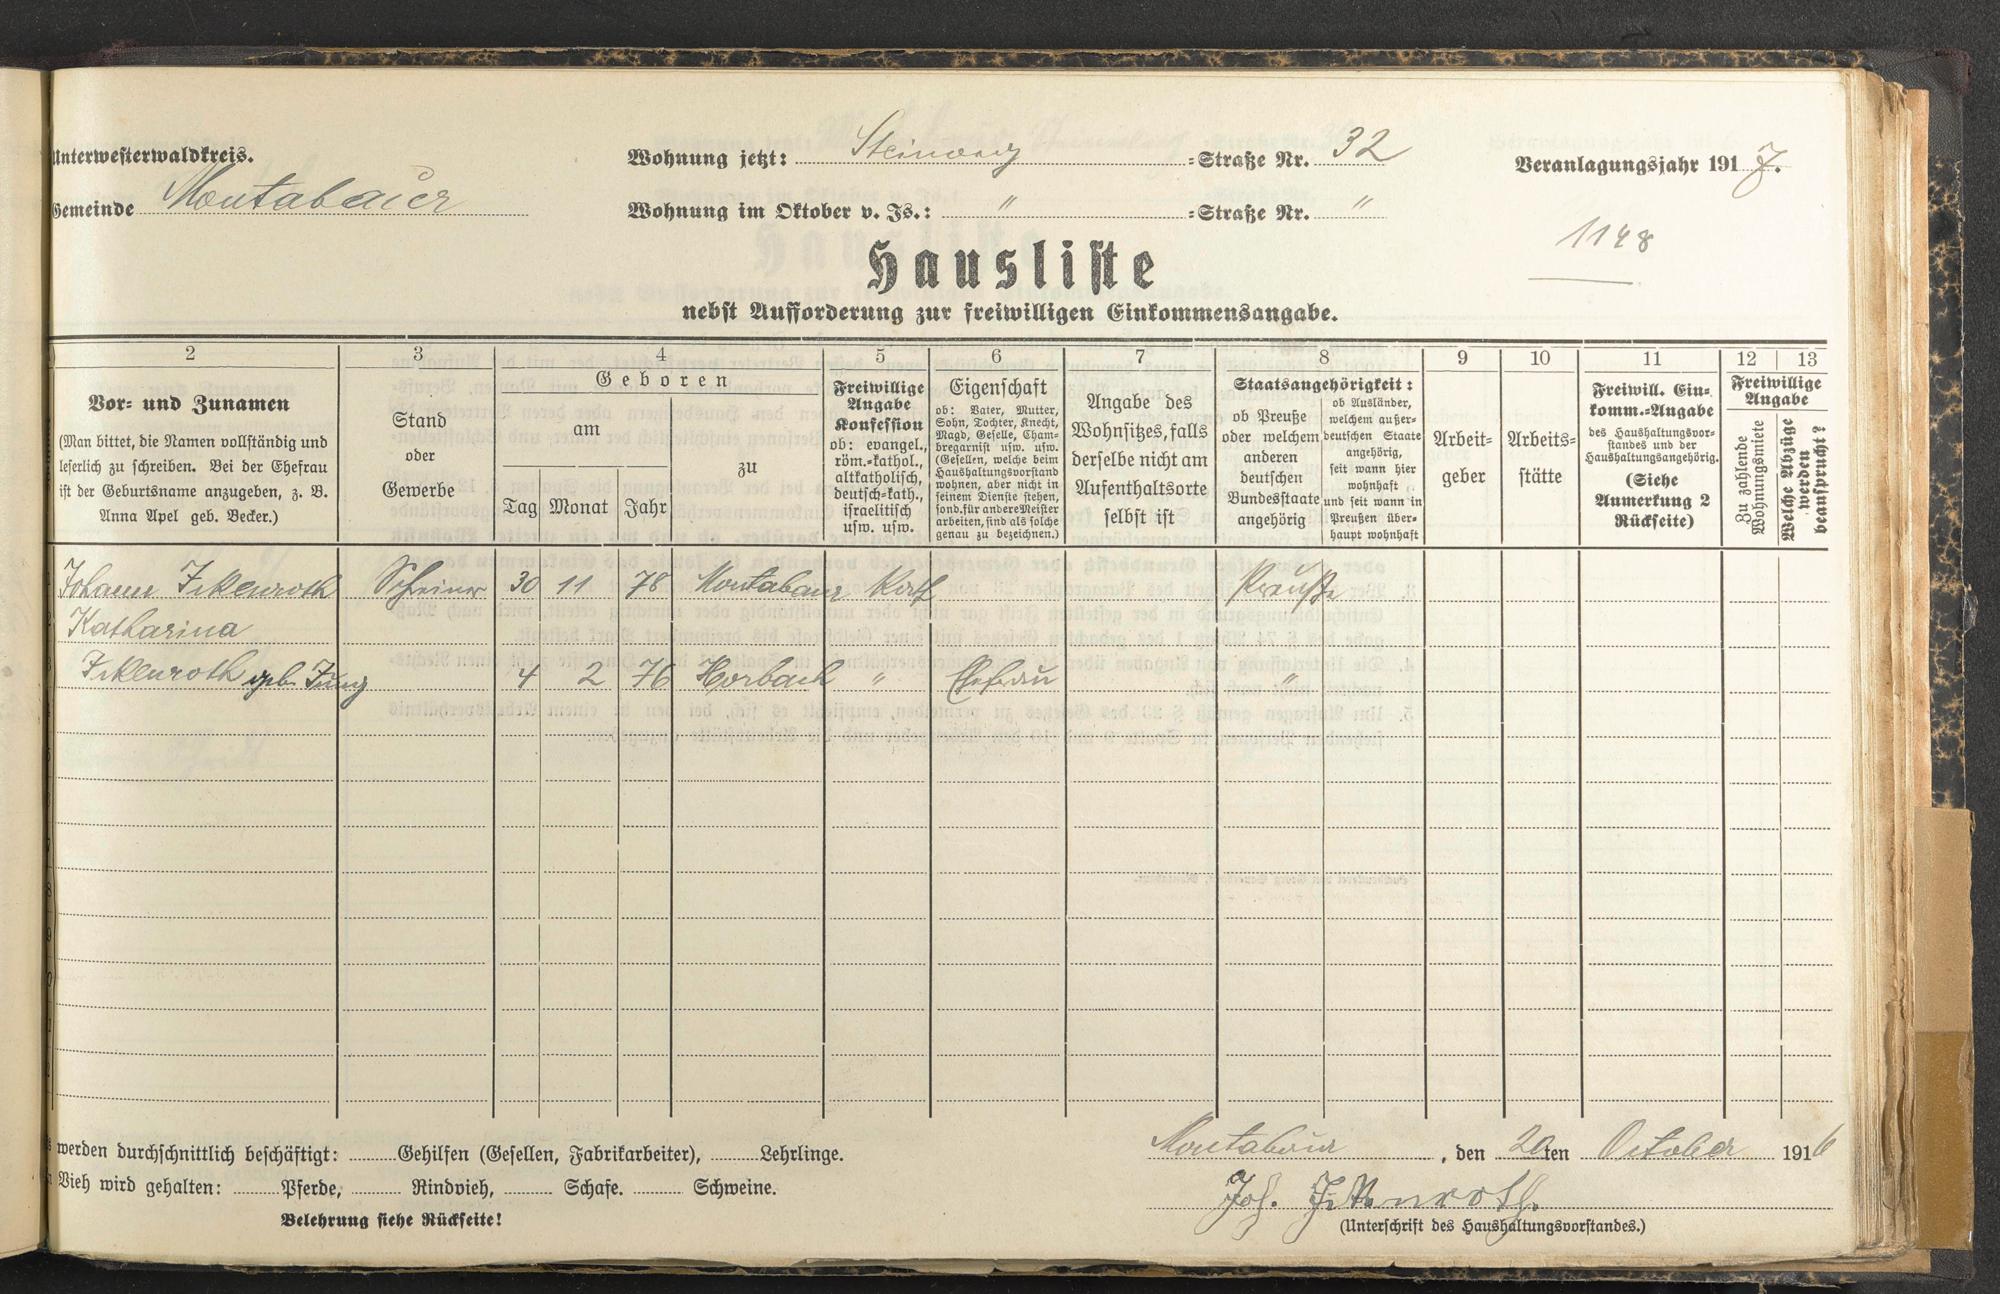 Unterwesterwaldkreis.
Wohnung jetzt: Steinweg =Straße Nr. 32
Veranlagungsjahr 1917.
Gemeinde Montabaur
Wohnung im Oktober v. Js.: " =Straße Nr. "
1148
Hausliste
nebst Aufforderung zur freiwilligen Einkommensangabe.
2 3 4 5 6 7 8 9 10 11 12 13
Vor- und Zunamen
(Man bittet, die Namen vollständig und
leserlich zu schreiben. Bei der Ehefrau
ist der Geburtsname anzugeben, z. B.
Anna Apel geb. Becker.)
Stand
oder
Gewerbe
Geboren
am
Tag Monat Jahr
zu
Freiwillige
Angabe
Konfession
ob: evangel.,
röm.-kathol.,
altkatholisch,
deutsch-kath.,
israelitisch
usw. usw.
Eigenschaft
ob: Vater, Mutter,
Sohn, Tochter, Knecht,
Magd, Geselle, Cham-
bregarnist usw. usw.
(Gesellen, welche beim
Haushaltungsvorstand
wohnen, aber nicht in
seinem Dienste stehen,
sond. für andere Meister
arbeiten, sind als solche
genau zu bezeichnen.)
Angabe des
Wohnsitzes, falls
derselbe nicht am
Aufenthaltsorte
selbst ist
Staatsangehörigkeit:
ob Preuße
oder welchem
anderen
deutschen
Bundesstaate
angehörig
ob Ausländer,
welchem außer-
deutschen Staate
angehörig,
seit wann hier
wohnhaft
und seit wann in
Preußen über-
haupt wohnhaft
Arbeit-
geber
Arbeits-
stätte
Freiwill. Ein-
komm.-Angabe
des Haushaltungsvor-
standes und der
Haushaltungsangehörig.
(Siehe
Anmerkung 2
Rückseite)
Freiwillige
Angabe
Zu zahlende
Wohnungsmiete
Welche Abzüge
werden
beansprucht?
Johann Ickenroth Schreiner 30 11 78 Montabaur Kath Preuße
Katharina
Ickenroth geb. Jung 4 2 76 Horbach " Ehefrau "
werden durchschnittlich beschäftigt: Gehilfen (Gesellen, Fabrikarbeiter), Lehrlinge.
Vieh wird gehalten: Pferde, Rindvieh, Schafe. Schweine.
Belehrung siehe Rückseite!
Montabaur, den 20ten October 1916
Joh. Ickenroth.
(Unterschrift des Haushaltungsvorstandes.)